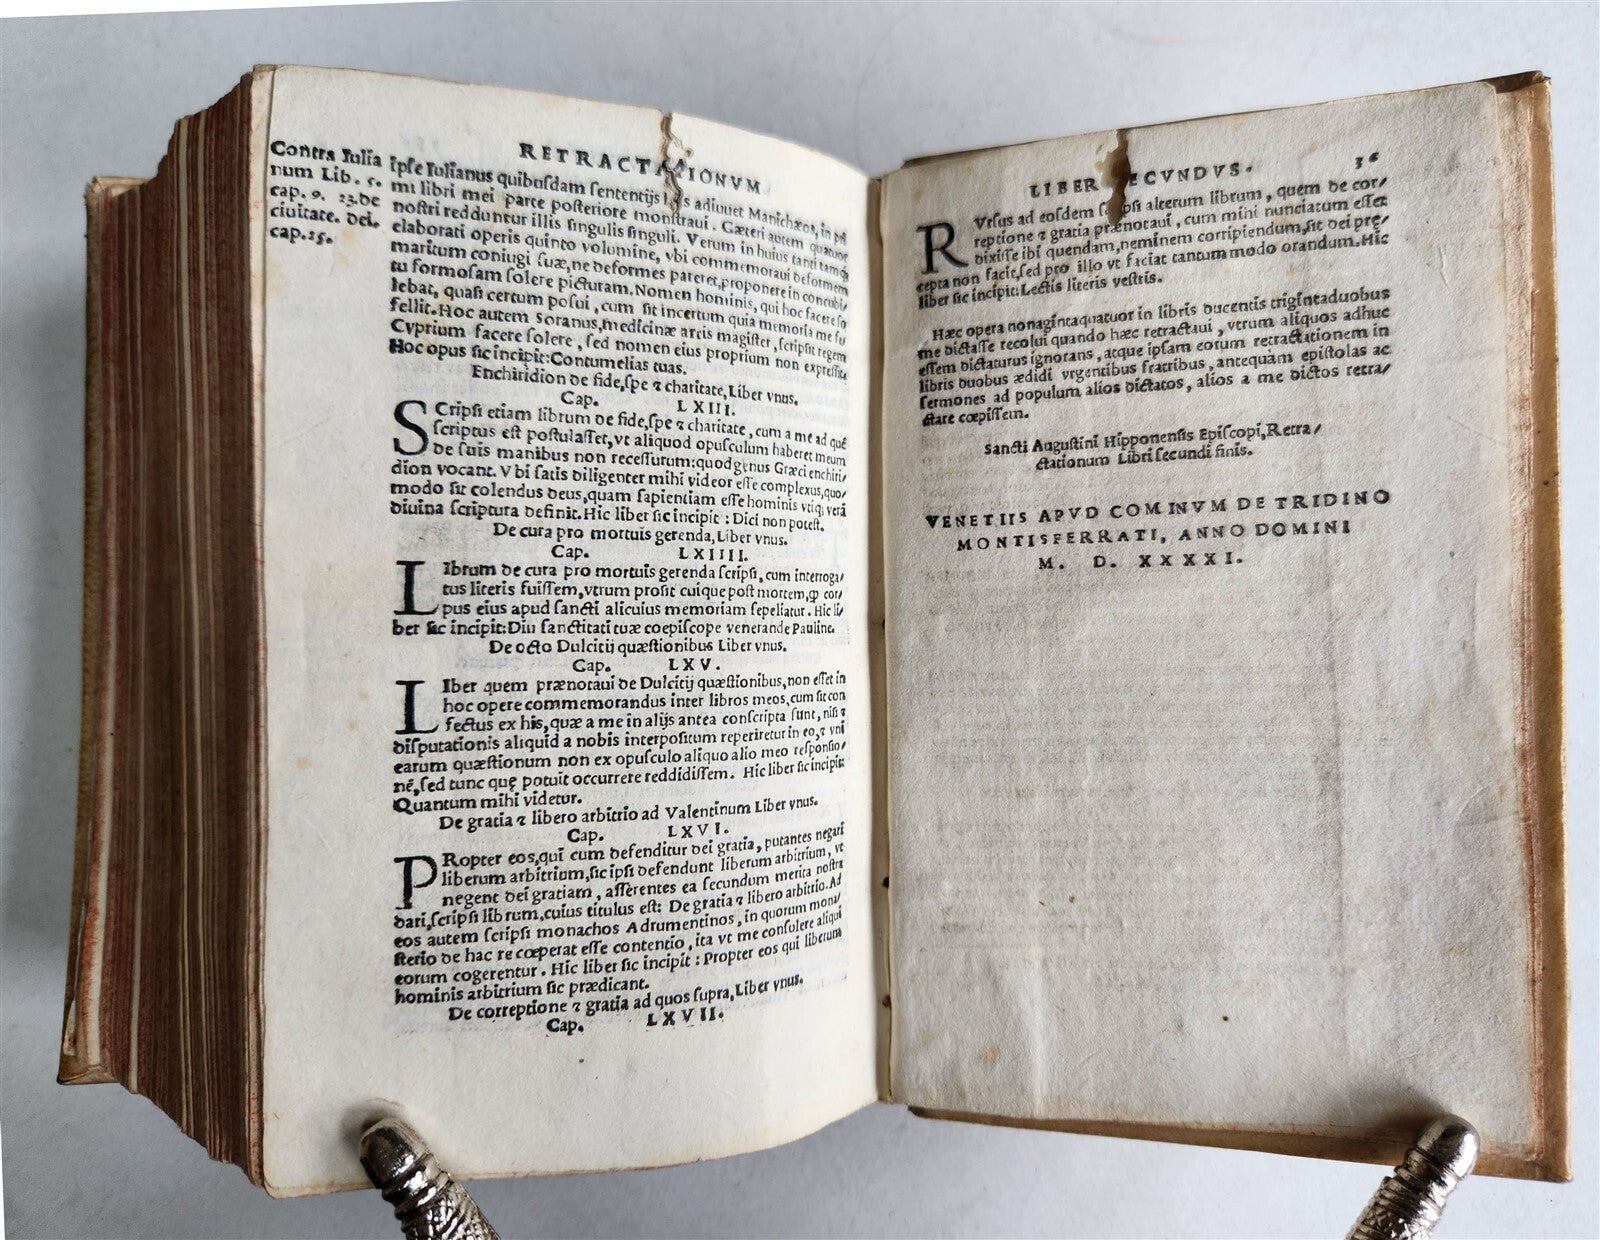 RETRACTATIONVM
Contra Iulia
num Lib. 5.
cap. 9. 23. De
ciuitate. dei.
cap.25.
ipse Iulianus quibusdam sententijs adiuuet Manichæos, in pri
mi libri mei parte posteriore monstraui. Cæteri autem quatuor
nostri redduntur illis singulis singuli. Verum in huius tanti tamq̃
elaborati operis quinto volumine, vbi commemoraui deformem
maritum coniugi suæ, ne deformes pareret, proponere in concubi/
tu formosam solere picturam. Nomen hominis, qui hoc facere so
lebat, quasi certum posui, cum sit incertum quia memoria me fe
fellit. Hoc autem soranus, medicinæ artis magister, scripsit regem
Cyprium facere solere, sed nomen eius proprium non expressit.
Hoc opus sic incipit: Contumelias tuas.
Enchiridion de fide, spe ⁊ charitate, Liber vnus.
Cap. LXIII.
SCripsi etiam librum de fide, spe ⁊ charitate, cum a me ad quē
scriptus est postulasset, vt aliquod opusculum haberet meum
de suis manibus non recessurum: quod genus Græci enchiri/
dion vocant. Vbi satis diligenter mihi videor esse complexus, quo/
modo sit colendus deus, quam sapientiam esse hominis vtiq; verā
diuina scriptura definit. Hic liber sic incipit: Dici non potest.
De cura pro mortuis gerenda, Liber vnus.
Cap. LXIIII.
LIbrum de cura pro mortuis gerenda scripsi, cum interroga/
tus literis fuissem, vtrum prosit cuique post mortem, ꝙ cor/
pus eius apud sancti alicuius memoriam sepeliatur. Hic li/
ber sic incipit: Diu sanctitati tuæ coepiscope venerande Pauline.
De octo Dulcitij quæstionibus Liber vnus.
Cap. LXV.
LIber quem prænotaui de Dulcitij quæstionibus, non esset in
hoc opere commemorandus inter libros meos, cum sit con
fectus ex his, quæ a me in alijs antea conscripta sunt, nisi ⁊
disputationis aliquid a nobis interpositum reperiretur in eo, ⁊ vni
earum quæstionum non ex opusculo aliquo alio meo responsio/
nē, sed tunc quę potuit occurrere reddidissem. Hic liber sic incipit:
Quantum mihi videtur.
De gratia ⁊ libero arbitrio ad Valentinum Liber vnus.
Cap. LXVI.
PRopter eos, qui cum defenditur dei gratia, putantes negari
liberum arbitrium, sic ipsi defendunt liberum arbitrium, vt
negent dei gratiam, asserentes ea secundum merita nostra
dari, scripsi librum, cuius titulus est: De gratia ⁊ libero arbitrio. Ad
eos autem scripsi monachos Adrumentinos, in quorum mona/
sterio de hac re cœperat esse contentio, ita vt me consulere aliqui
eorum cogerentur. Hic liber sic incipit: Propter eos qui liberum
hominis arbitrium sic prædicant.
De correptione ⁊ gratia ad quos supra, Liber vnus.
Cap. LXVII.
LIBER SECVNDVS. 36
RVrsus ad eosdem scripsi alterum librum, quem de cor/
reptione ⁊ gratia prænotaui, cum mihi nunciatum esset
dixisse ibi quendam, neminem corripiendum, sit dei prę/
cepta non facit, sed pro illo vt faciat tantum modo orandum. Hic
liber sic incipit: Lectis literis vestris.
Hæc opera nonagintaquatuor in libris ducentis trigintaduobus
me dictasse recolui quando hæc retractaui, vtrum aliquos adhuc
essem dictaturus ignorans, atque ipsam eorum retractationem in
libris duobus ædidi vrgentibus fratribus, antequàm epistolas ac
sermones ad populum alios dictatos, alios a me dictos retra/
ctare cœpissem.
Sancti Augustini Hipponensis Episcopi, Retra/
ctationum Libri secundi finis.
VENETIIS APVD COMINVM DE TRIDINO
MONTISFERRATI, ANNO DOMINI
M. D. XXXXI.